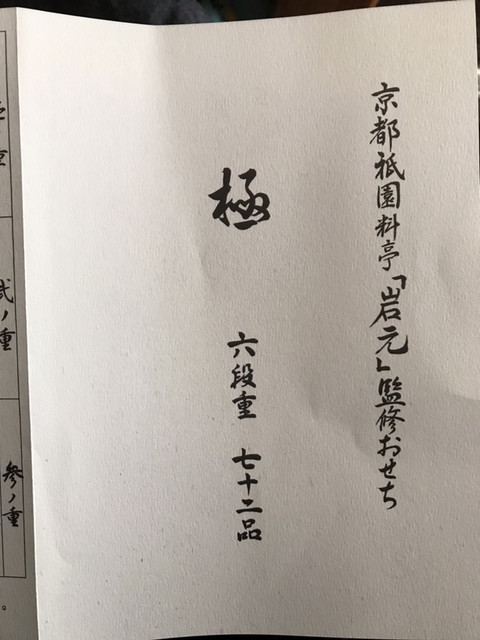 京都祇園料亭「岩元」監修おせち
極 六段重 七十二品
弐ノ重
参ノ重
。